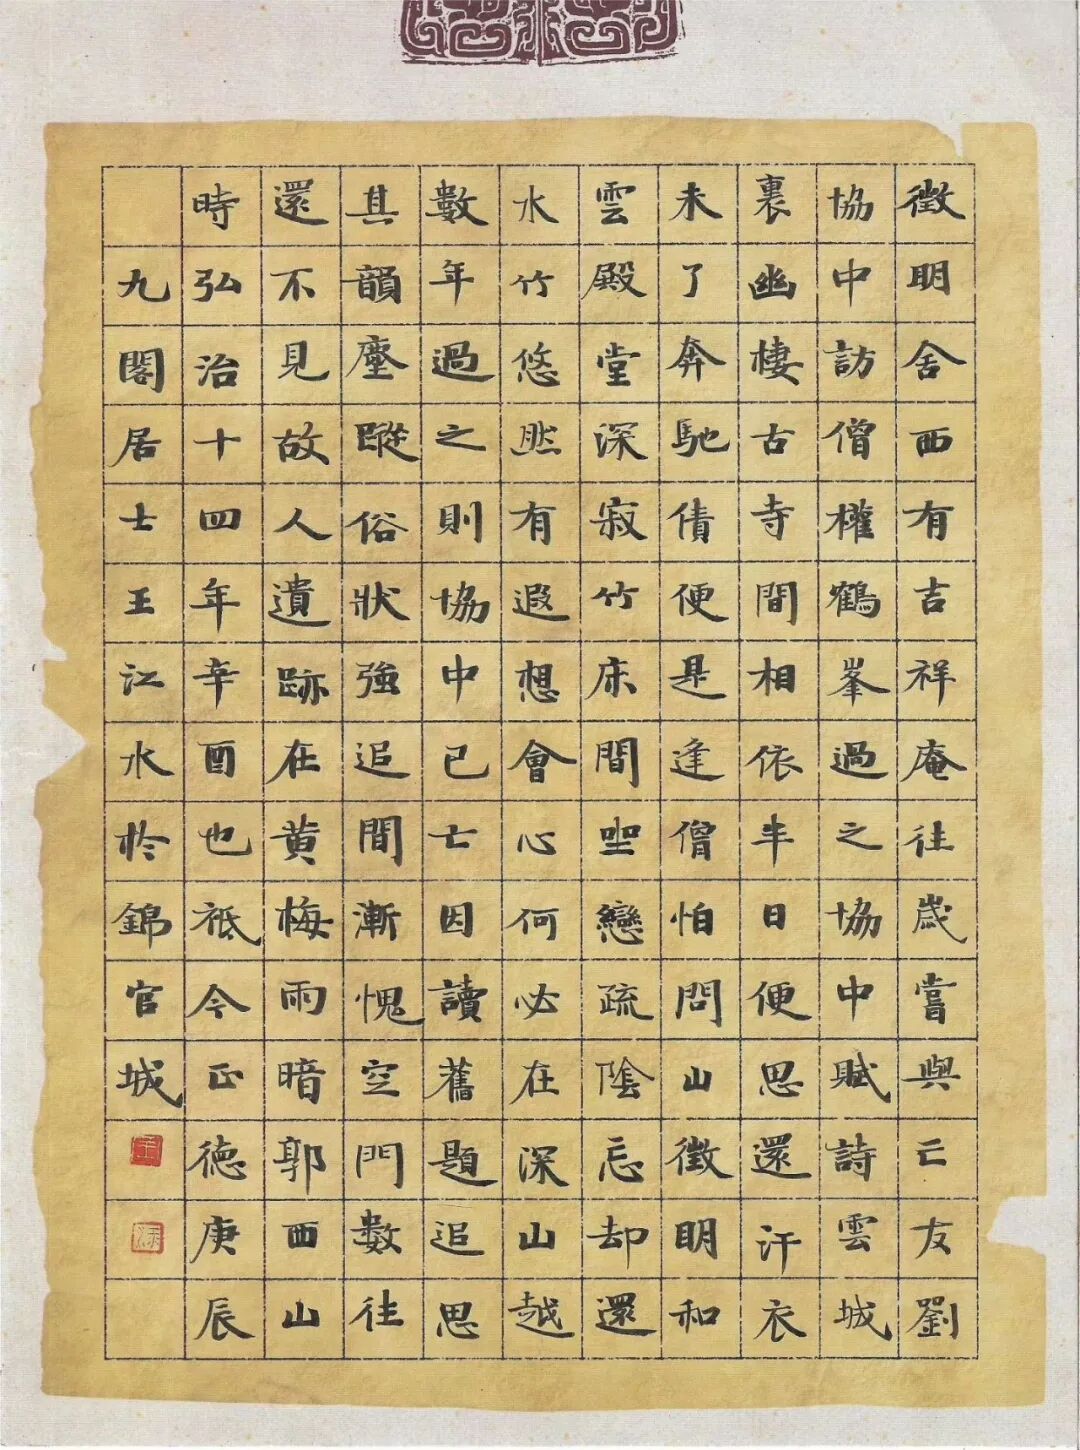 徵明舍西有吉祥庵往歲嘗與亡友劉
協中訪僧權鶴峯過之協中賦詩雲城
裏幽棲古寺間相依半日便思還汗衣
未了奔馳債便是逢僧怕問山徵明和
雲殿堂深寂竹床間坐戀疏陰忘却還
水竹悠然有遐想會心何必在深山越
數年過之則協中已亡因讀舊題追思
其韻塵蹤俗狀強追間漸愧空門數往
還不見故人遺跡在黃梅雨暗郭西山
時弘治十四年辛酉也祗今正德庚辰
九閣居士王江水於錦官城
王